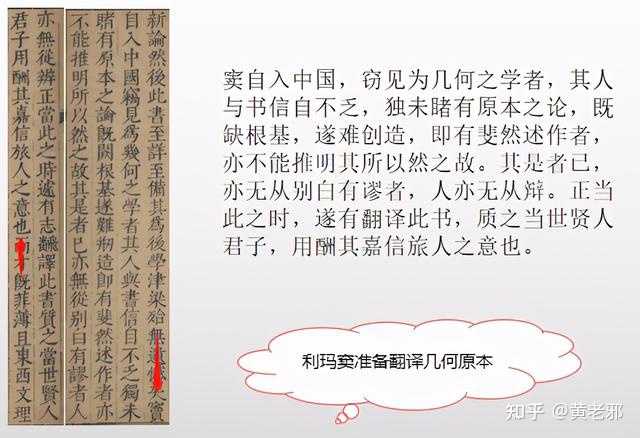 新論然後此書至詳至備其為後學津梁殆無竇
自入中國竊見為幾何之學者其人與書信自不乏獨未
睹有原本之論既闕根基遂難剏造即有斐然述作者亦
不能推明所以然之故其是者已亦無從別白有謬者人
亦無從辨正當此之時遽有志翻譯此書質之當世賢人
君子用酬其嘉信旅人之意也既菲薄且東西文理
窦自入中国，窃见为几何之学者，其人
与书信自不乏，独未睹有原本之论，既
缺根基，遂难创造，即有斐然述作者，
亦不能推明其所以然之故。其是者已，
亦无从别白有谬者，人亦无从辩。正当
此之时，遂有翻译此书，质之当世贤人
君子，用酬其嘉信旅人之意也。
利玛窦准备翻译几何原本
知乎 @黄老邪